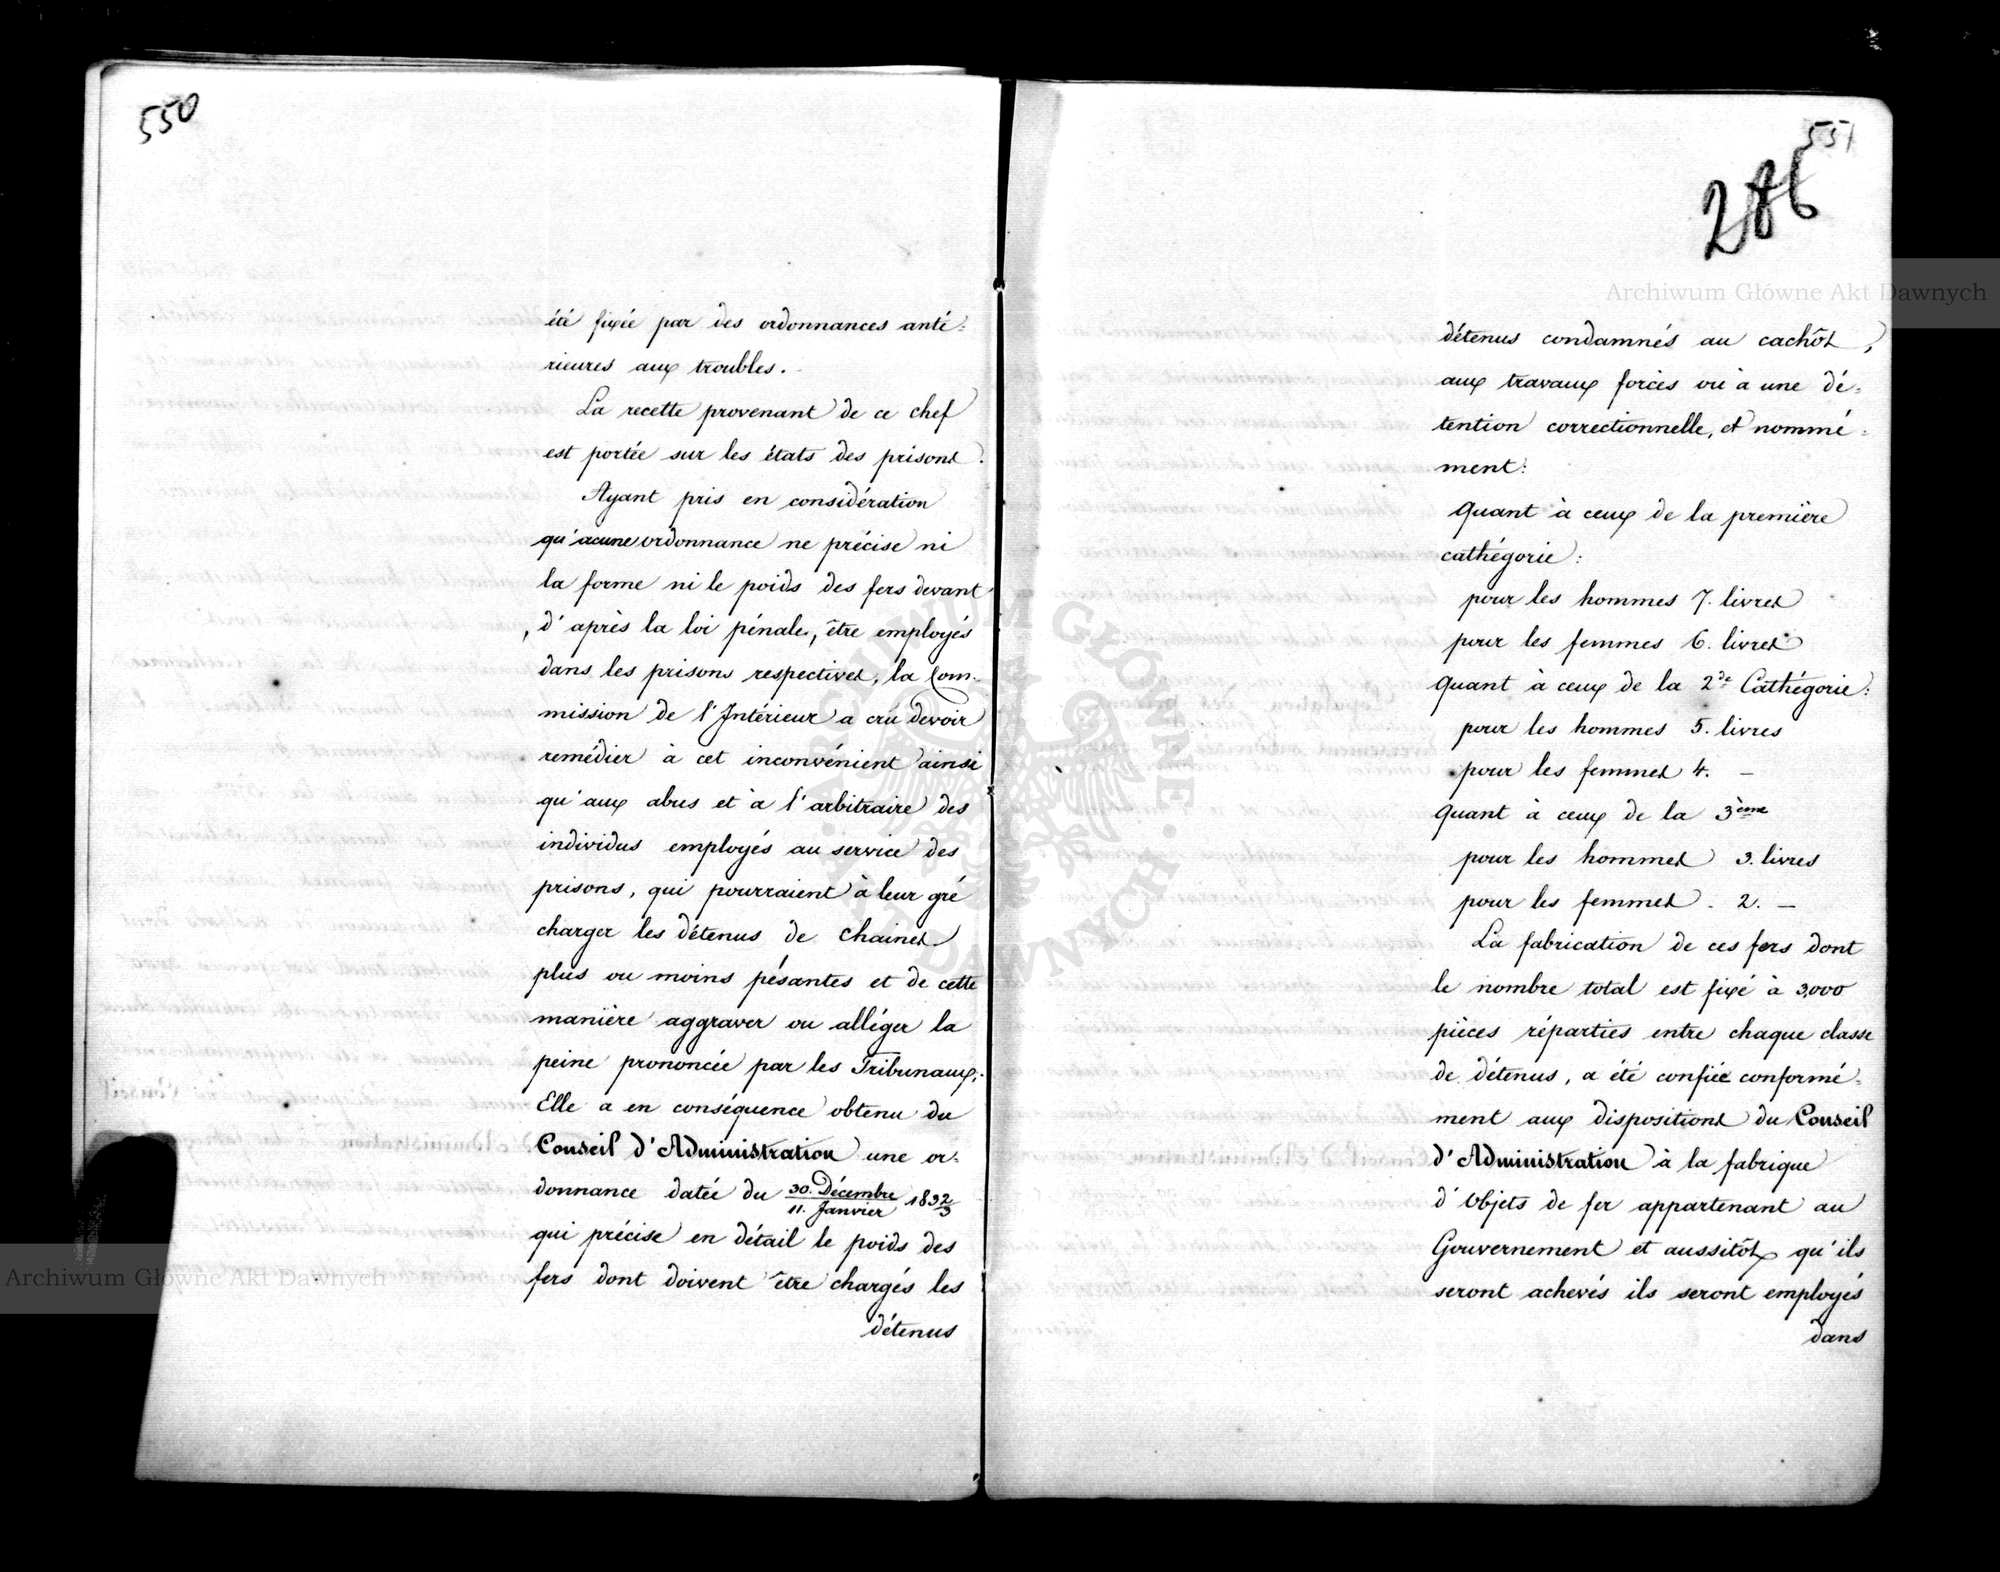 550
été fixée par des ordonnances anté=
rieures aux troubles.
La recette provenant de ce chef
est portée sur les états des prisons.
Ayant pris en considération
qu'acune ordonnance ne précise ni
la forme ni le poids des fers devant
, d'après la loi pénale, être employés
dans les prisons respectives, la Com-
mission de l'Intérieur a crû devoir
remédier à cet inconvénient ainsi
qu'aux abus et à l'arbitraire des
individus employés au service des
prisons, qui pourraient à leur gré
charger les détenus de chaines
plus ou moins pésantes et de cette
manière aggraver ou alléger la
peine prononcée par les Tribunaux.
Elle a en conséquence obtenu du
Conseil d'Administration une or-
donnance datée du 30. Décembre / 11. Janvier 1832/3
qui précise en détail le poids des
fers dont doivent être chargés les
détenus
551
286
détenus condamnés au cachôt,
aux travaux forcés ou à une dé=
tention correctionnelle, et nommé=
ment:
Quant à ceux de la première
cathégorie:
pour les hommes 7. livres
pour les femmes 6. livres
Quant à ceux de la 2de Cathégorie:
pour les hommes 5. livres
pour les femmes 4. —
Quant à ceux de la 3ème
pour les hommes 3. livres
pour les femmes . 2. —
La fabrication de ces fers dont
le nombre total est fixé à 3,000
pièces réparties entre chaque classe
de détenus, a été confiée conformé=
ment aux dispositions du Conseil
d'Administration à la fabrique
d'objets de fer appartenant au
Gouvernement et aussitôt qu'ils
seront achevés ils seront employés
dans
Archiwum Główne Akt Dawnych
Archiwum Główne Akt Dawnych
ARCHIWUM GŁÓWNE AKT DAWNYCH